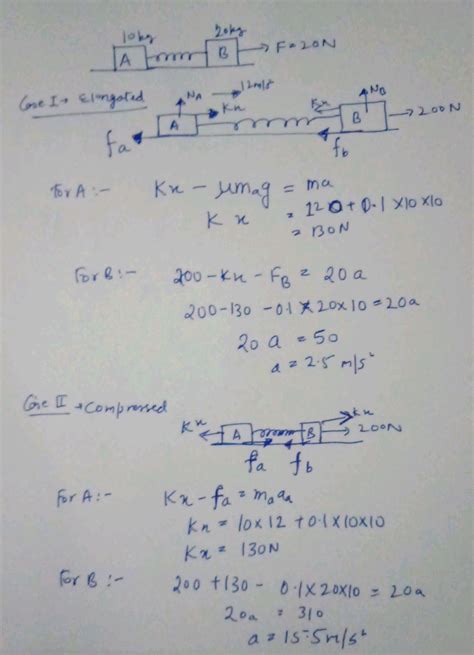 10kg 20kg
A B → F = 20N
Case I → Elongated
N_A → 12m/s² N_B
Kx Kx
A B → 200N
f_a f_b
For A :- Kx - μm_a g = ma
Kx = 120 + 0.1 × 10 × 10
= 130N
For B :- 200 - Kx - F_B = 20a
200 - 130 - 0.1 × 20 × 10 = 20a
20 a = 50
a = 2.5 m/s²
Case II → Compressed
Kx A B Kx
→ 200N
f_a f_b
For A :- Kx - f_a = m_a a_a
Kx = 10 × 12 + 0.1 × 10 × 10
Kx = 130N
For B :- 200 + 130 - 0.1 × 20 × 10 = 20a
20a = 310
a = 15.5 m/s²